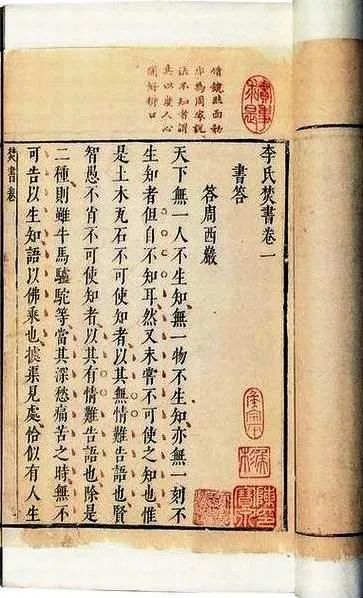 借鏡照面動
非為周家説
法不知者謂
真以度人心
閒好辨口
李氏焚書卷一
書答
答周西巖
天下無一人不生知無一物不生知亦無一刻不
生知者但自不知耳然又未嘗不可使之知也惟
是土木瓦石不可使知者以其無情難告語也賢
智愚不肖不可使知者以其有情難告語也除是
二種則雖牛馬驢駝等當其深愁痛苦之時無不
可告以生知語以佛乘也據渠見處恰似有人生
焚書卷一